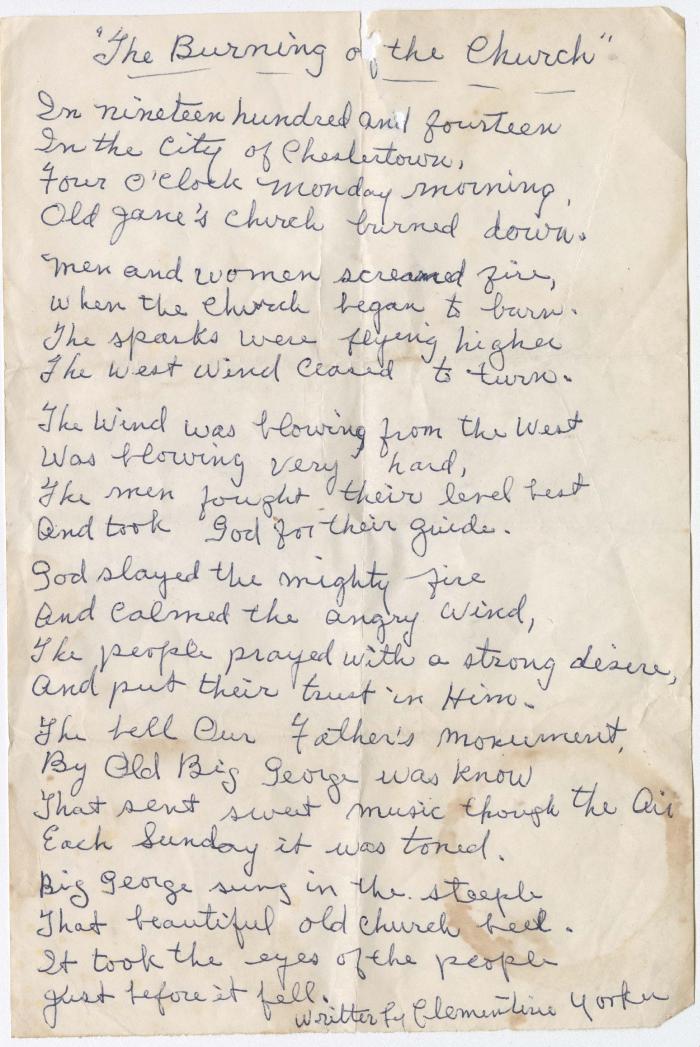 "The Burning of the Church"
In nineteen hundred and fourteen
In the City of Chestertown,
Four O'Clock Monday morning,
Old Jane's Church burned down.
Men and women screamed fire,
When the Church began to burn.
The sparks were flying higher
The West Wind Ceased to turn.
The Wind was blowing from the West
Was blowing very hard,
The men fought their level best
And took God for their guide.
God slayed the mighty fire
And Calmed the angry Wind,
The people prayed with a strong desire,
And put their trust in Him.
The bell Our Father's monument,
By Old Big George was know
That sent sweet music though the Air
Each Sunday it was toned.
Big George sung in the steeple
That beautiful old church bell.
It took the eyes of the people
Just before it fell.
Writter by Clementine Yorker